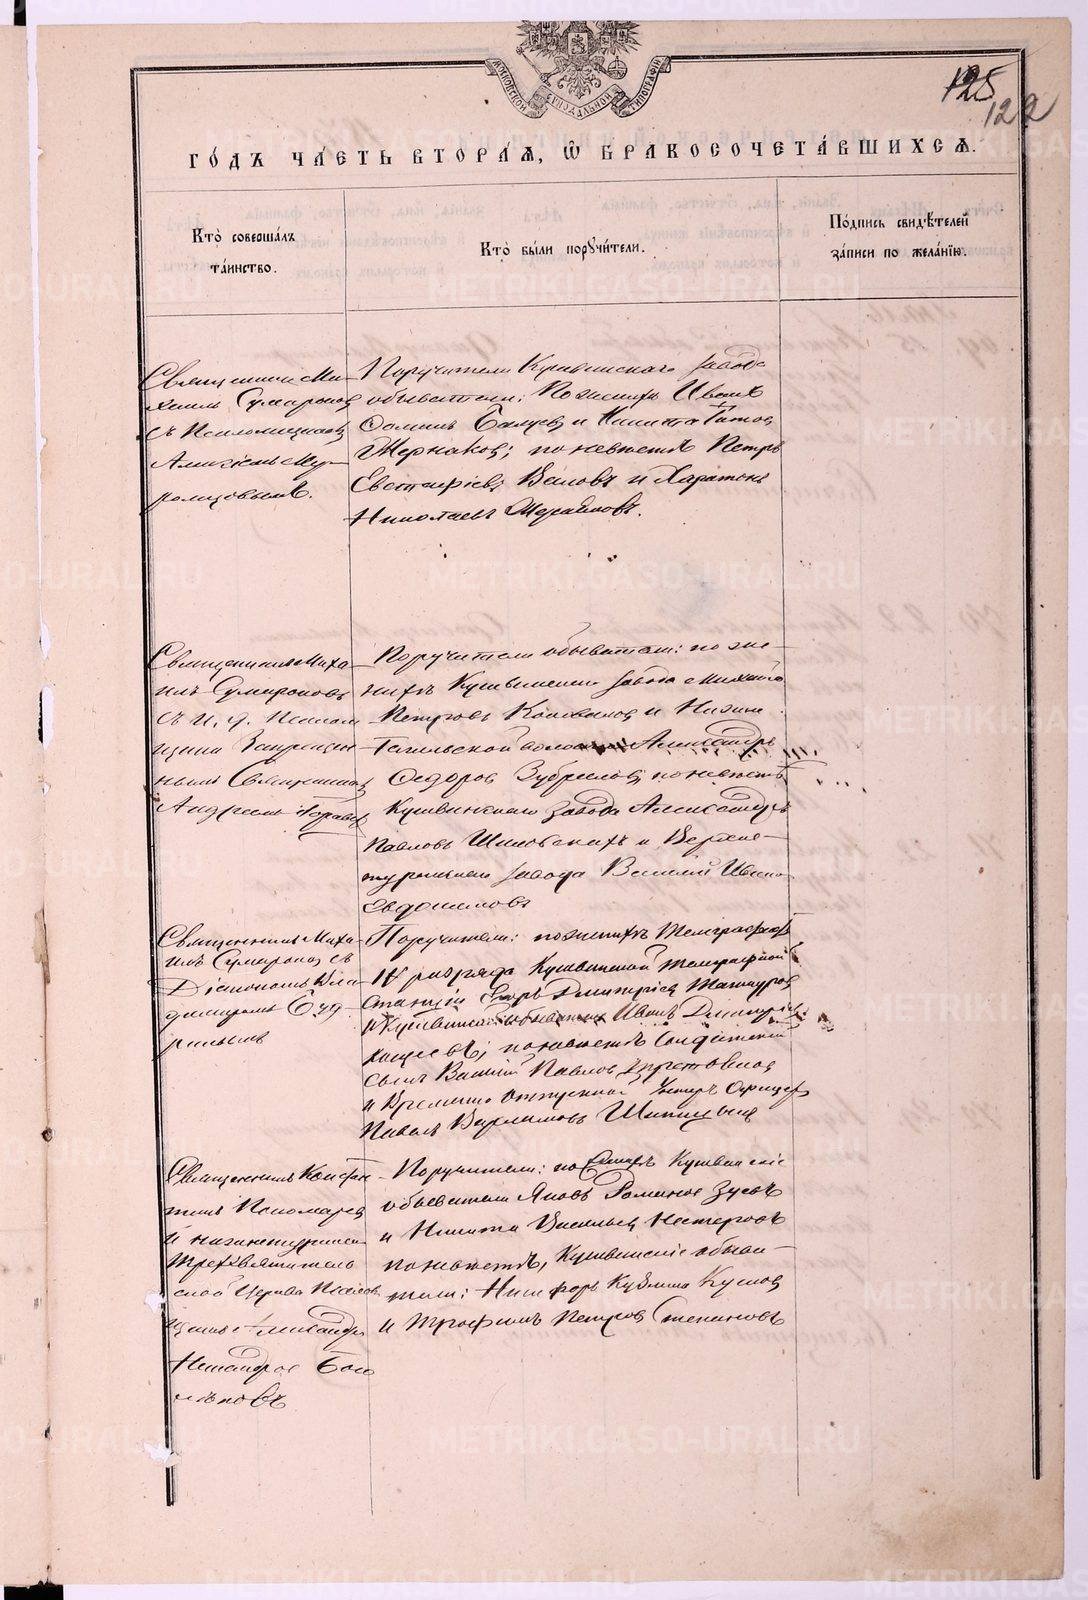 125
122
МОСКОВСКОЙ СѴНОДАЛЬНОЙ ТИПОГРАФІИ
ГО́ДЪ ЧА́СТЬ ВТОРА́Я, Ѽ БРАКОСОЧЕТА́ВШИХСЯ.
Кто̀ соверша́лъ
та́инство.
Кто̀ бы́ли поручи́тели.
По́дпись свидѣ́телей
за́писи по жела́нїю.
Священникъ Ми-
хаилъ Сумароковъ
съ Псаломщикомъ
Алексѣемъ Му-
Поручители Кушвинскаго завода
обыватели: По женихѣ Иванъ
Ѳоминъ и Никита Титовъ
Жернаковъ; по невѣстѣ Петръ
Евстафіевъ Бѣловъ и Харитонъ
Николаевъ
Священникъ Миха-
илъ Сумароковъ
съ и. д. Псалом
щика Запрещен
нымъ Священникомъ
Андреемъ
Поручители обыватели: по же-
нихѣ Кушвинскаго завода Михаилъ
Петровъ и Нижне
Тагильской волости Александръ
Ѳедоровъ по невѣстѣ
Кушвинскаго завода Александръ
Павловъ и Верхне-
туринскаго завода Василій Ивановъ
Евдокимовъ
Священникъ Миха-
илъ Сумароковъ съ
Діакономъ Вла-
димиромъ
Поручители: по женихѣ Телеграфистъ
IV разряда Кушвинской телеграфной
Станціи Дмитріевъ
и Кушвинскій обыватель Иванъ Дмитріевъ
по невѣстѣ Солдатскій
сынъ Василій Павловъ
и Временно отпускной Унтеръ Офицеръ
Павелъ Варламовъ Шипицынъ
Священникъ Констан-
тинъ Пономаревъ
и нижнетуринской
Трехсвятитель
ской Церкви Псалом
щикъ Александръ
Никандровъ Бого
лѣповъ
Поручители: по женихѣ Кушвинскіе
обыватели Яковъ Зуевъ
и Никита Васильевъ Нестеровъ
по невѣстѣ, Кушвинскіе обыва-
тели: Никифоръ Кузминъ
и Трофимъ Петровъ Степановъ
METRIKI.GASO-URAL.RU